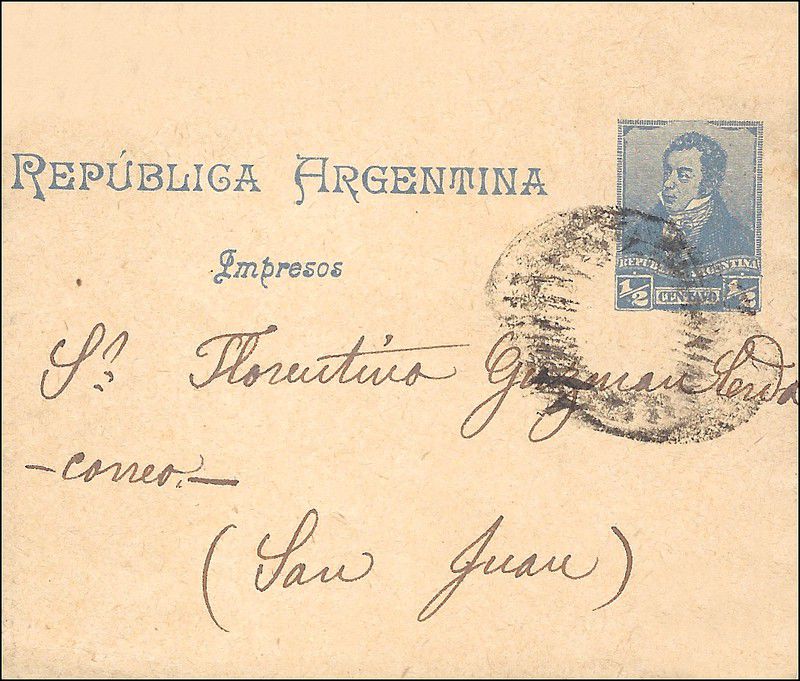 REPÚBLICA ARGENTINA
REPUBLICA ARGENTINA
1/2 CENTAVO 1/2
Impresos
Sr. Florentino Guzman
-correo.-
(San Juan)